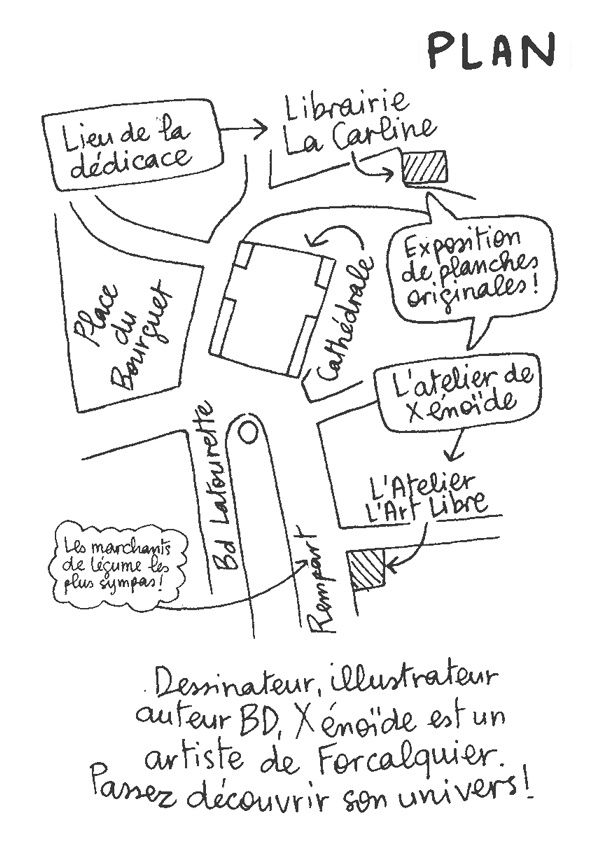 PLAN
Lieu de la
dédicace
Librairie
La Carline
Exposition
de planches
originales !
Place
du
Bourguet
Cathédrale
L'atelier de
Xénoïde
L'Atelier
L'Art Libre
Bd Latourette
Les marchants
de légume les
plus sympas !
Rempart
Dessinateur, illustrateur
auteur BD, Xénoïde est un
artiste de Forcalquier.
Passez découvrir son univers !